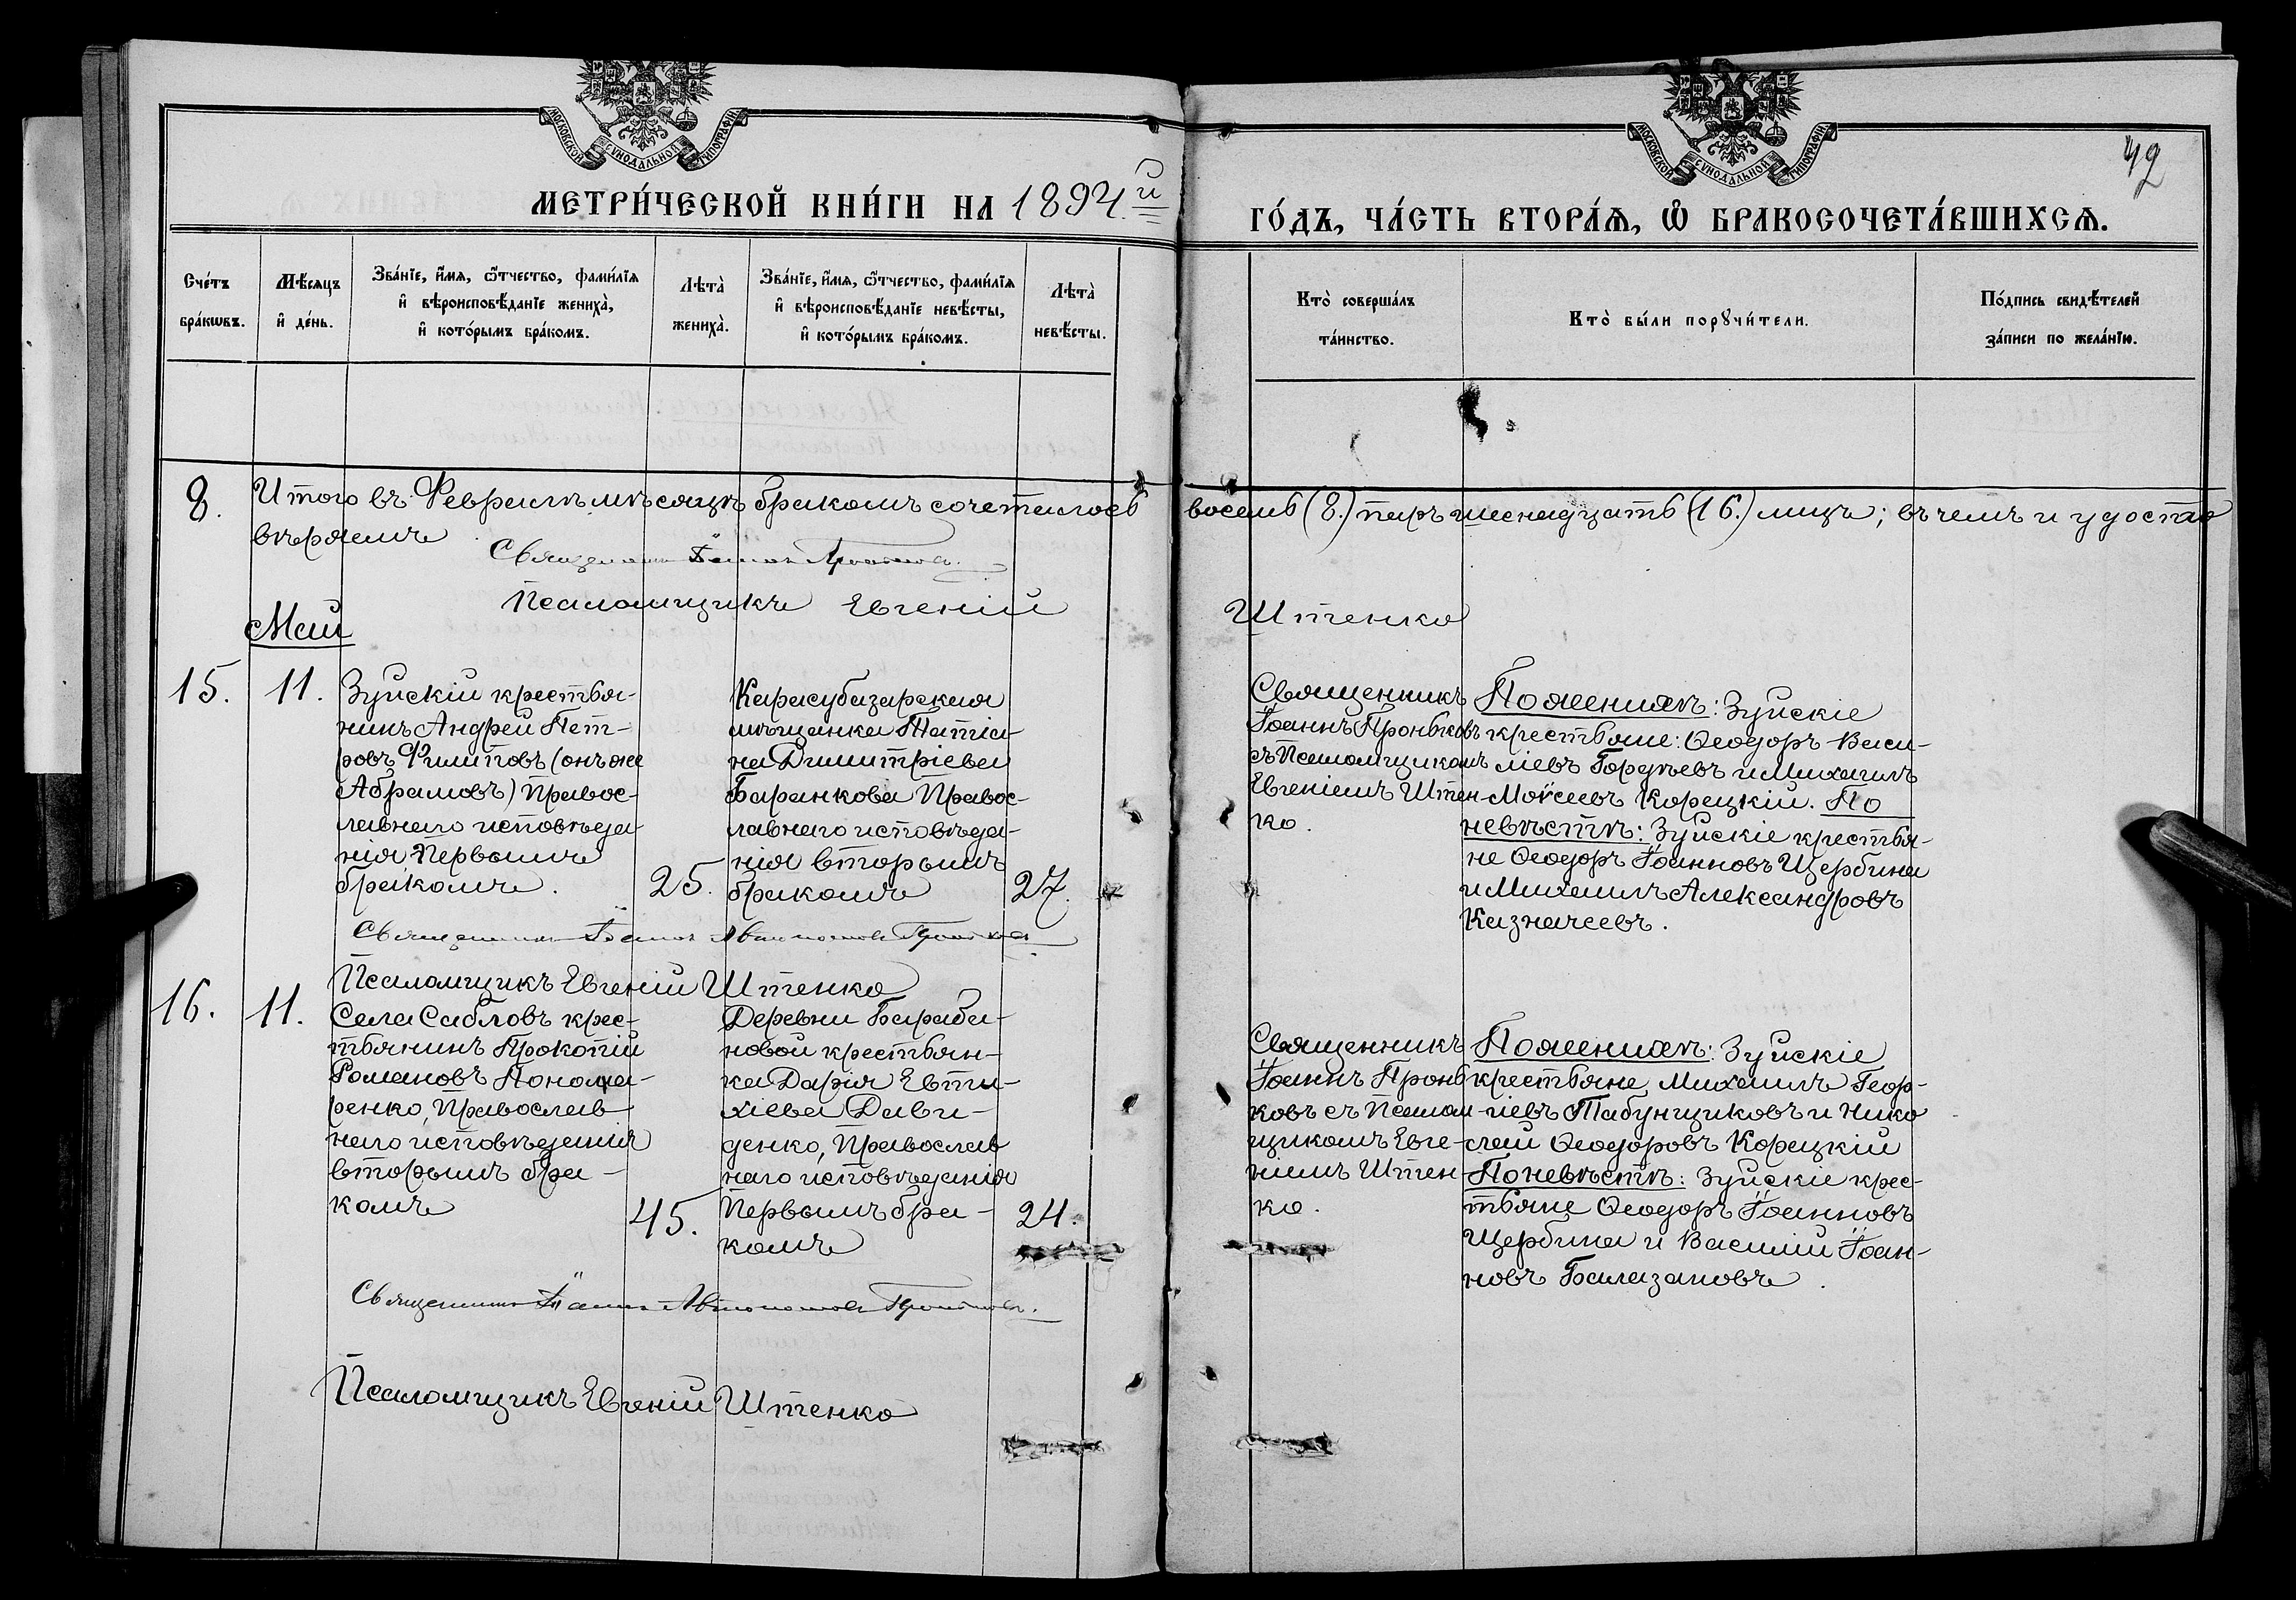 МОСКОВСКОЙ СѴНОДАЛЬНОЙ ТИПОГРАФІИ
МЕТРИ́ЧЕСКОЙ КНИ́ГИ НА 1894.й
Сче́тъ бра́кѡвъ.
Мѣ́сяцъ и҆ де́нь.
Зва́нїе, и҆́мя, ѻ҆́тчество, фами́лїя
и҆ вѣроисповѣ́данїе жениха̀,
и҆ кото́рымъ бра́комъ.
Лѣта̀
жениха̀.
Зва́нїе, и҆́мя, ѻ҆́тчество, фами́лїя
и҆ вѣроисповѣ́данїе невѣ́сты,
и҆ кото́рымъ бра́комъ.
Лѣта̀
невѣ́сты.
МОСКОВСКОЙ СѴНОДАЛЬНОЙ ТИПОГРАФІИ
42
ГО́ДЪ, ЧА́СТЬ ВТОРА́Ѧ, Ѡ҆ БРАКОСОЧЕТА́ВШИХСѦ.
Кто̀ соверша́лъ
та́инство.
Кто̀ бы́ли порꙋчи́тели.
По́дпись свидѣ́телей
за́писи по жела́нїю.
8. Итого въ Февралѣ мѣсяцѣ бракомъ сочеталось восемь (8.) паръ шеснадцать (16.) лицъ; въ чемъ и удосто
вѣряемъ
Священникъ Іоаннъ
Псаломщикъ Евгеній Штенко
Май
15. 11. Зуйскій крестья-
нинъ Андрей Пет-
ровъ Филиповъ (онъ же
Абрамовъ) Правос-
лавнаго исповѣда-
нія Первымъ
бракомъ. 25.
Карасубазарская
мѣщанка Татіа-
на Димитріева
Баранкова Правос-
лавнаго исповѣда-
нія вторымъ
бракомъ 27.
Священникъ
Іоаннъ Проньковъ
съ Псаломщикомъ
Евгеніемъ Штен-
ко.
По женихѣ: Зуйскіе
крестьяне: Ѳеодоръ Васи-
ліевъ Гордѣевъ и Михаилъ
Моѵсеевъ Корецкій. По
невѣстѣ: Зуйскіе крестья-
не Ѳеодоръ Іоанновъ Щербина
и Михаилъ Александровъ
Казначеевъ.
Священникъ Іоаннъ Автономовъ Проньковъ
Псаломщикъ Евгеній Штенко
16. 11. Села Сабловъ крес-
тьянинъ Прокопій
Романовъ Понома-
ренко, Православ-
наго исповѣданія
вторымъ бра-
комъ 45.
Деревни Бараба-
новой крестьян-
ка Дарія Евти-
хіева Дави-
денко, Православ
наго исповѣданія
Первымъ бра-
комъ 24.
Священникъ
Іоаннъ Проньь-
ковъ съ Псалом-
щикомъ Евге-
ніемъ Штен-
ко.
По женихѣ: Зуйскіе
крестьяне Михаилъ Геор-
гіевъ Табунщиковъ и Нико
лай Ѳеодоровъ Корецкій
По невѣстѣ: Зуйскіе крес-
тьяне Ѳеодоръ Іоанновъ
Щербина и Василій Іоан-
новъ Балазановъ.
Священникъ Іоаннъ Автономовъ Проньковъ.
Псаломщикъ Евгеній Штенко